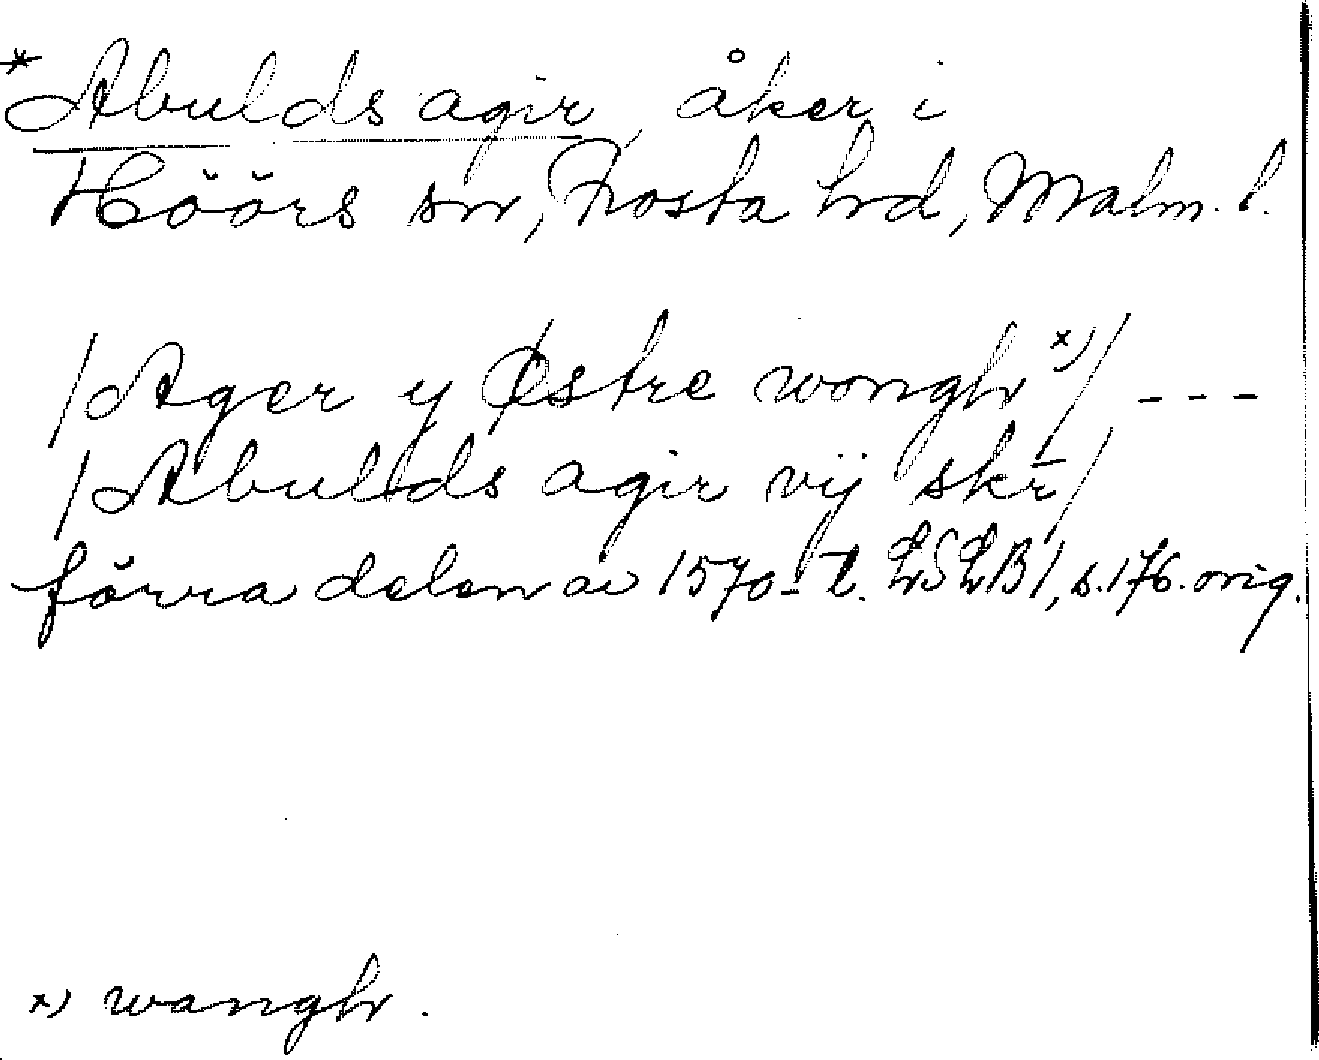 *Abulds agir, åker i
Höörs sn, Frosta hrd, Malm. l.
/Ager y Østre wongh x)/ ---
/Abulds agir vij skr/
förra delen av 1570-t. LSLB 1, s. 176. orig.
x) wangh.